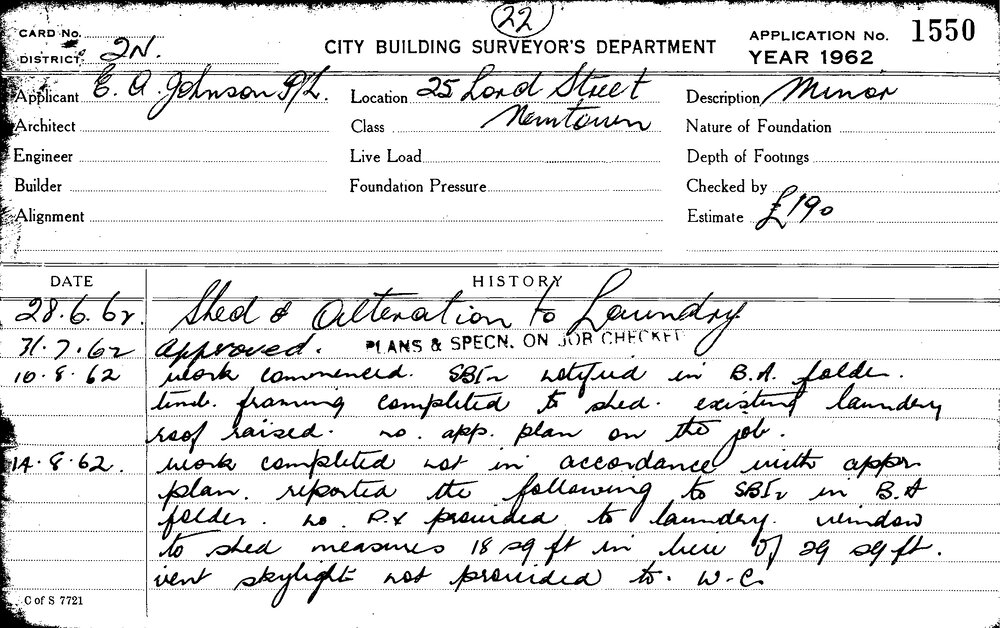 22
CARD No.
DISTRICT: 2N.
CITY BUILDING SURVEYOR'S DEPARTMENT
APPLICATION No. 1550
YEAR 1962
Applicant E. A. Johnson P/L.
Location 25 Lord Street
Description Minor
Architect
Class Newtown
Nature of Foundation
Engineer
Live Load
Depth of Footings
Builder
Foundation Pressure
Checked by
Alignment
Estimate £190
DATE
HISTORY
28.6.62. Shed & Alteration to Laundry
31.7.62 approved. PLANS & SPECN. ON JOB CHECKED
10.8.62 work commenced. SBIr notified in B.A. folder.
timb. framing completed to shed. existing laundry
roof raised. no. app. plan on the job.
14.8.62. work completed not in accordance with appr.
plan. reported the following to SBIr in B.A
folder. no. P.V provided to laundry. window
to shed measures 18 sq ft in lieu of 29 sq ft.
vent skylight not provided to. W.C.
C of S 7721